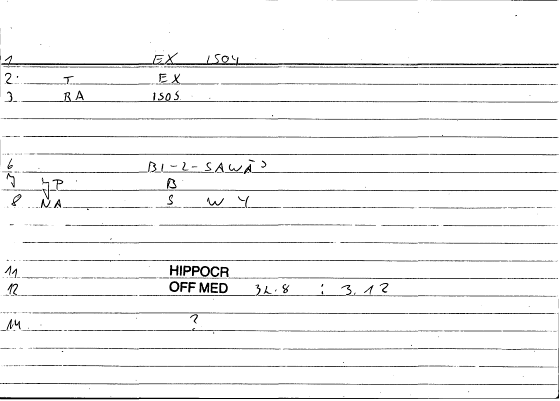 1 EX 1504
2. T EX
3 RA 1505
6 BI-2-SAWĀD
7 P B
8 NA S W Y
11 HIPPOCR
12 OFF MED 32.8 : 3.12
14 ?